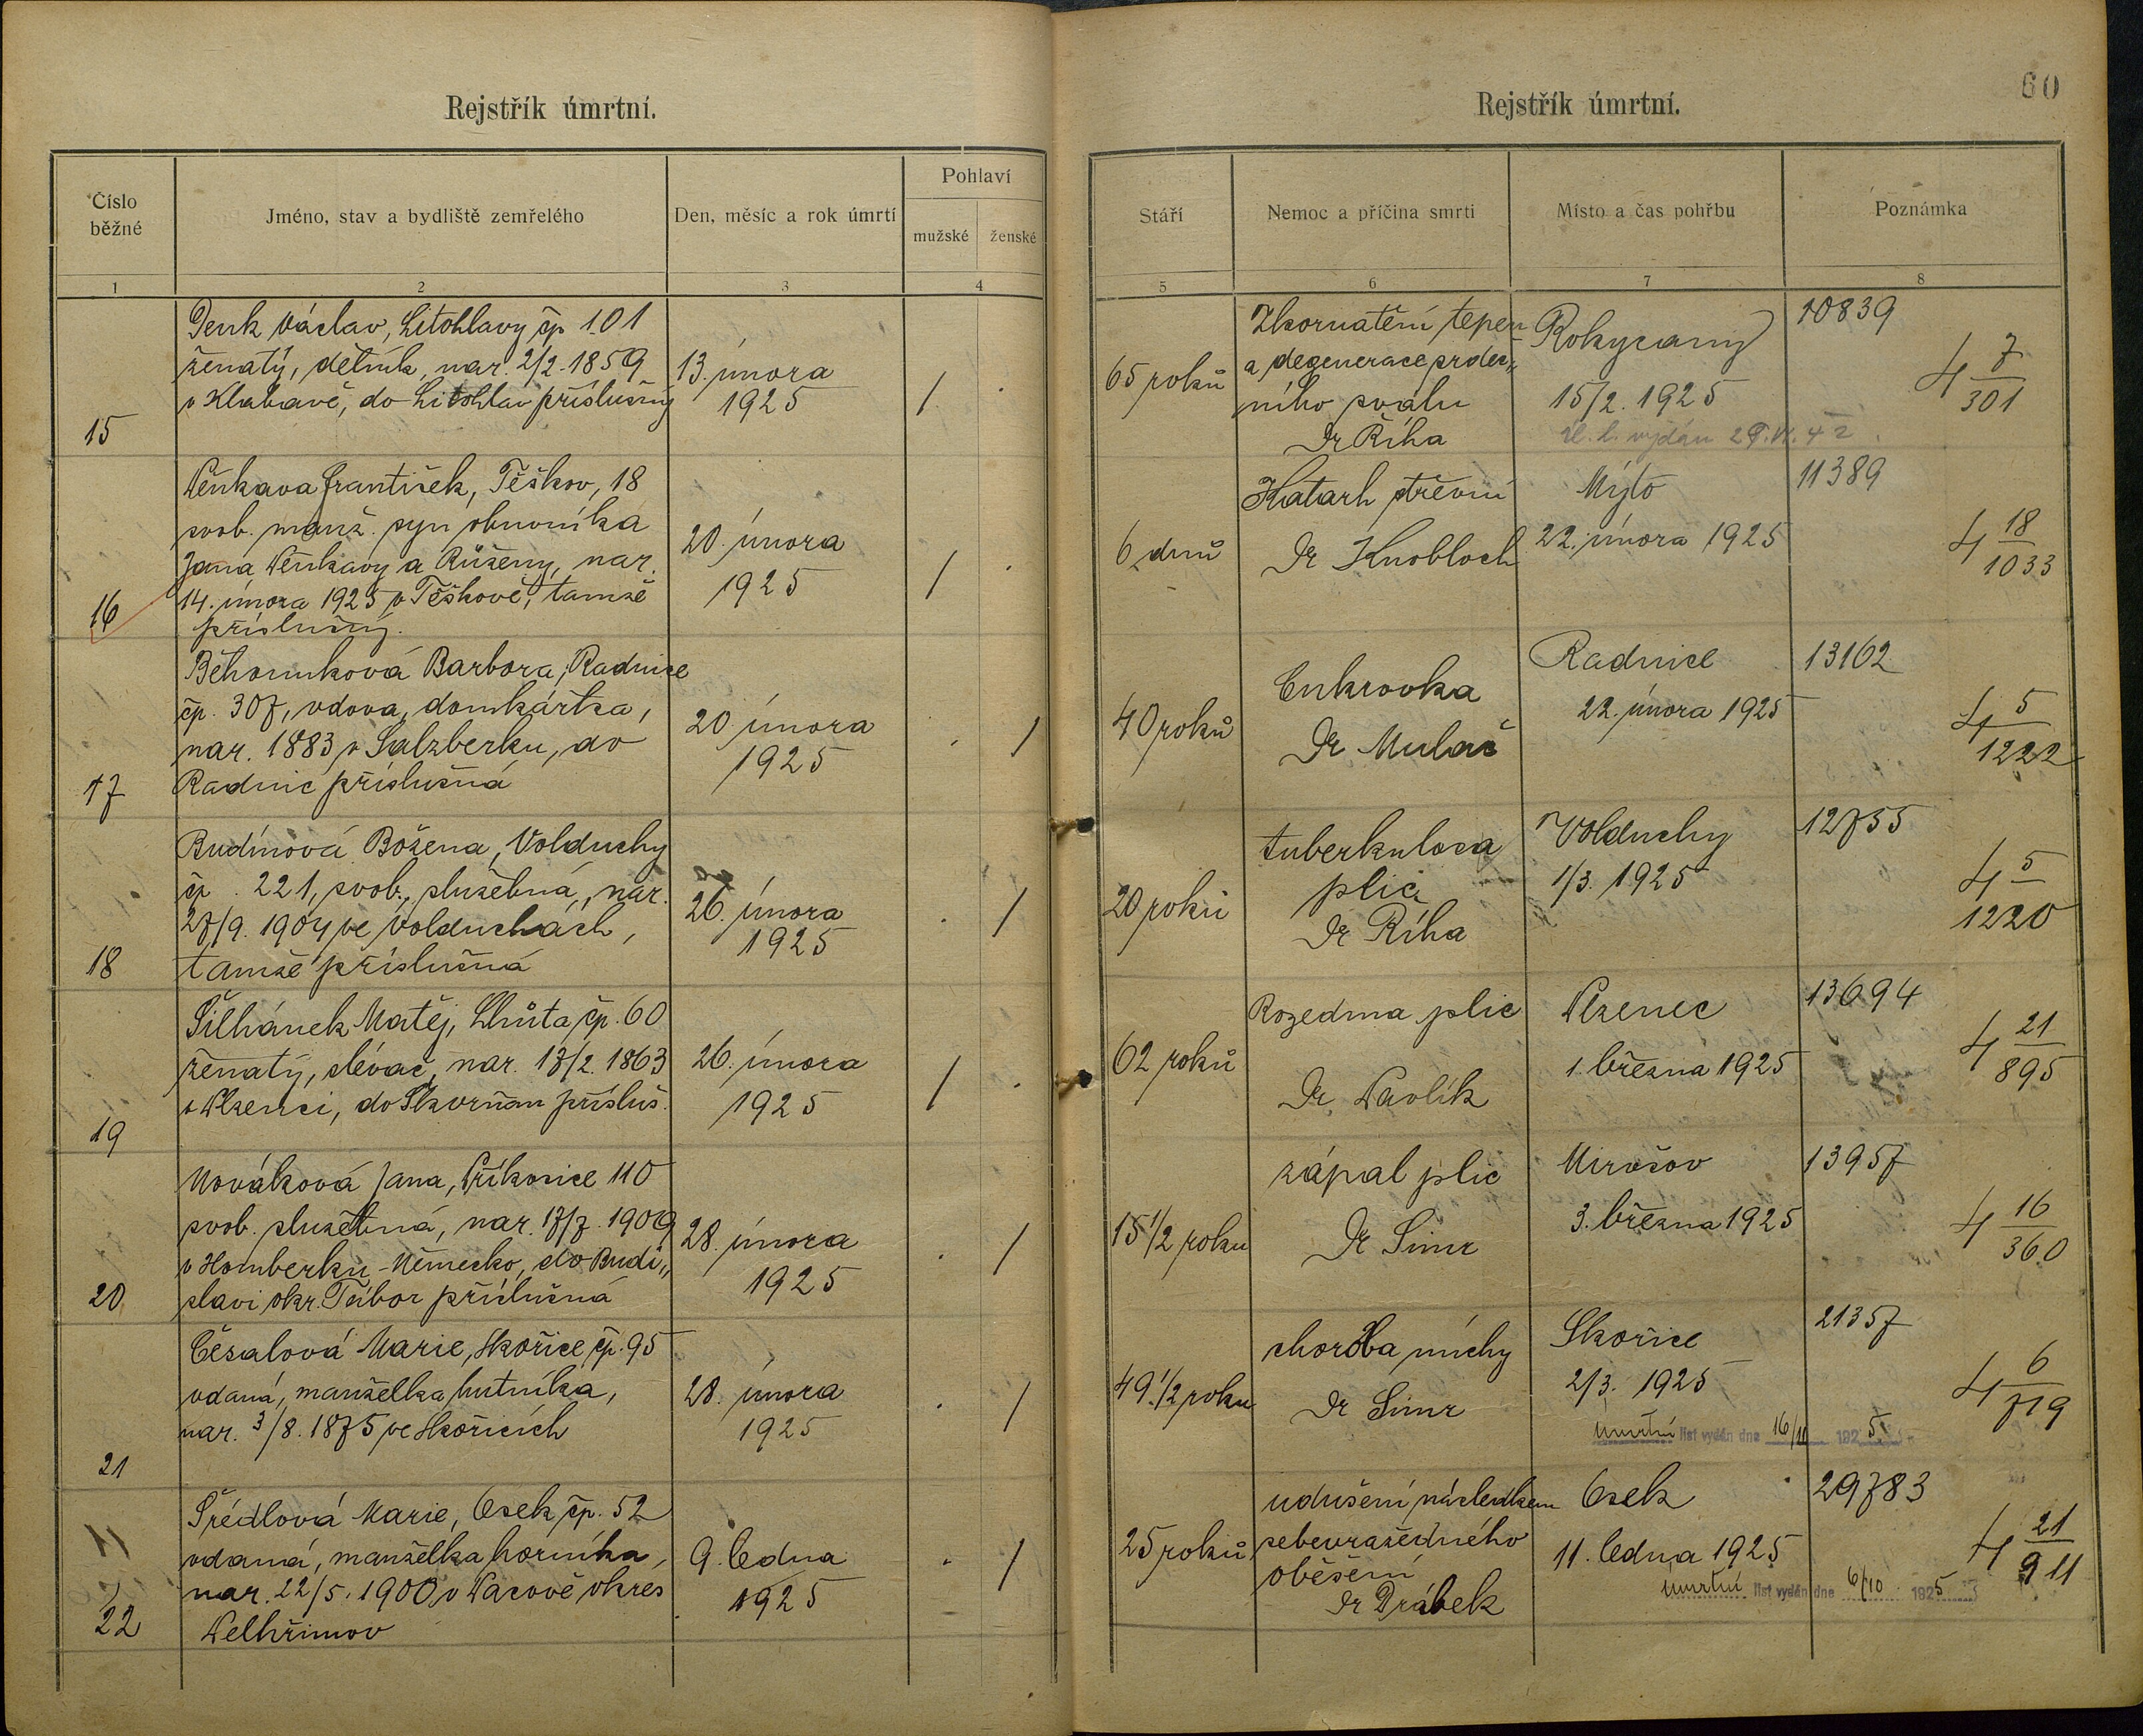 Rejstřík úmrtní.
Číslo běžné
Jméno, stav a bydliště zemřelého
Den, měsíc a rok úmrtí
Pohlaví
mužské
ženské
1
2
3
4
15
Denk Václav, Litohlavy čp 101
ženatý, dělník, nar. 2/2.1859
v Klabavě, do Litohlav příslušný
13. února
1925
/
.
16
František, Těškov, 18
svob. manž. syn obuvníka
Jana a Růženy, nar.
14. února 1925 v Těškově, tamže
příslušný.
20. února
1925
/
.
17
Běhounková Barbora, Radnice
čp. 307, vdova, domkářka,
nar. 1883 v Salzberku, do
Radnic příslušná
20. února
1925
.
/
18
Rudinová Božena, Volduchy
čp. 221, svob., služebná, nar.
27/9. 1904 ve Volduchách,
tamže příslušná
26. února
1925
.
/
19
Šilhánek Matěj, Lhůta čp. 60
ženatý, slévač, nar. 17/2. 1863
v Plzenci, do Skvrňan přísluš.
26. února
1925
/
.
20
Nováková Jana, Příkosice 110
svob. služebná, nar. 17/7. 1909
v Homberku - Německo, do Budi„
slavi okr. Tábor příslušná
28. února
1925
.
/
21
Česalová Marie, Skořice čp. 95
vdaná, manželka hutníka,
nar. 3/8. 1875 ve Skořicích
28. února
1925
.
/
22
Šrédlová Marie, Osek čp. 52
vdaná, manželka horníka,
nar. 22/5. 1900 v Pacově okres
Pelhřimov
9. ledna
1925
.
/
60
Rejstřík úmrtní.
Stáří
Nemoc a příčina smrti
Místo a čas pohřbu
Poznámka
5
6
7
8
65 roků
Zkornatění tepen
a degenerace srdeč„
ního svalu
Dr Říha
Rokycany
15/2. 1925
10839
4 7/301
6 dnů
Katarh střevní
Dr Knobloch
Mýto
22. února 1925
11389
4 18/1033
40 roků
Cukrovka
Dr Mulač
Radnice
22. února 1925
13162
4 5/1222
20 roků
tuberkulosa
plic
Dr Říha
Volduchy
1/3. 1925
12755
4 5/1220
62 roků
Rozedma plic
Dr. Pavlík
Plzenec
1. března 1925
13694
4 21/895
15 1/2 roku
zápal plic
Dr Simr
Mirošov
3. března 1925
13957
4 16/360
49 1/2 roku
choroba míchy
Dr Simr
Skořice
2/3. 1925
Úmrtní list vydán dne 16/11 1925.
21357
4 6/719
25 roků
udušení následkem
sebevražedného
oběšení
Dr Drábek
Osek
11. ledna 1925
Úmrtní list vydán dne 6/10 1925
29783
4 21/911